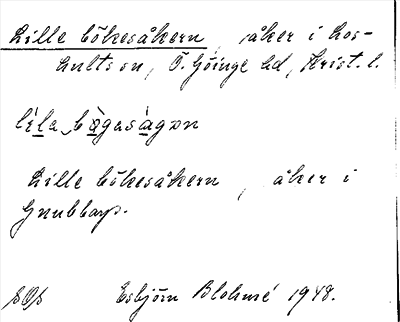 Lille bökesåkern, åker i Los-
hults sn, Ö. Göinge hd, Krist. l.
lìla bögasàgøn
Lille bökesåkern, åker i
Gnubbarp.
Esbjörn Blohmé 1948.